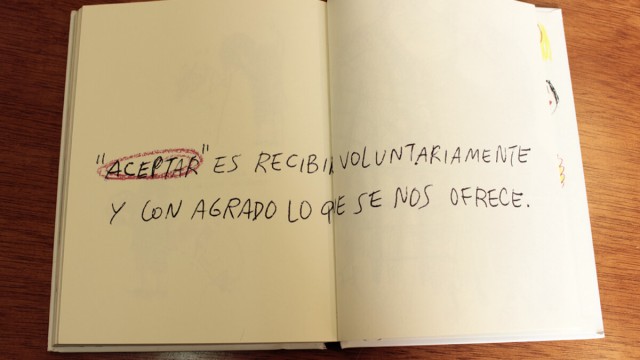 "ACEPTAR" ES RECIBIR VOLUNTARIAMENTE
Y CON AGRADO LO QE SE NOS OFRECE.